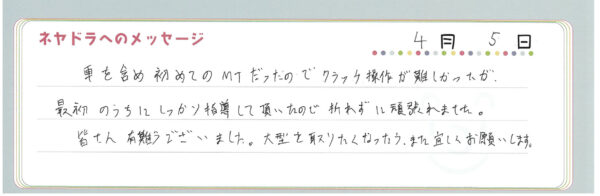 ネヤドラへのメッセージ
4月 5日
車を含め 初めての MTだったので クラッチ操作が難しかったが、
最初 のうちに しっかり指導して頂いたので 折れずに頑張れました。
皆さん 有難うございました。大型を取りたくなったら、また宜しくお願いします。